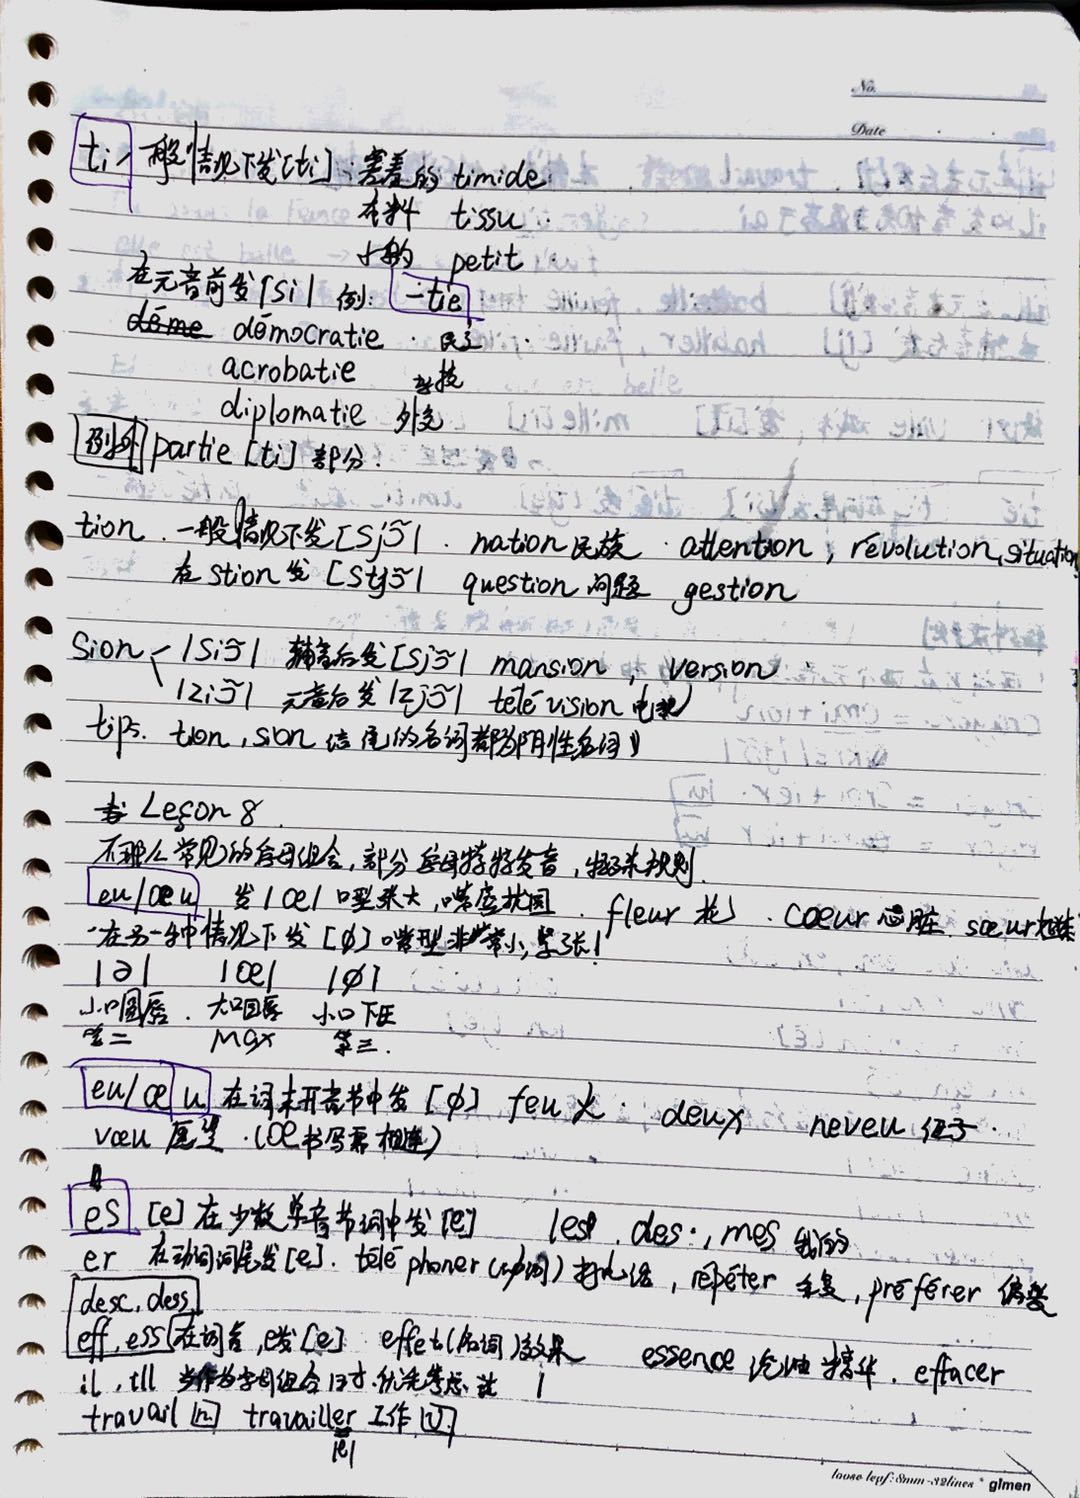 No.
Date
ti 一般情况下发[ti]:害羞的 timide
布料 tissu
小的 petit
在元音前发[si] 例: -tie
déme démocratie 民主
acrobatie 杂技
diplomatie 外交
例外 partie [ti] 部分.
tion. 一般情况下发[sjɔ̃]. nation 民族 attention, révolution, situation
在 stion 发 [stjɔ̃] question 问题 gestion
sion |siɔ̃| 辅音后发[sjɔ̃] mansion, version
|ziɔ̃| 元音后发|zjɔ̃| télévision 电视
tips. tion, sion 结尾的名词都为阴性名词
Leçon 8
不那么常见的字母组合,部分字母特殊发音,特殊规则.
eu/œu 发|œ| 口型张大,嘴唇拢圆. fleur 花. cœur 心脏. sœur 姐妹
在另一种情况下发[ø] 嘴型非常小,紧张!
|ə| |œ| |ø|
小口圆唇. 大口圆唇 小口下压
第二 Max 第三.
eu/œu 在词末开音节中发[ø] feu 火. deux neveu 侄子.
vœu 愿望. (œ书写需相连)
es [e] 在少数单音节词中发[e] les, des, mes 我的
er 在动词词尾发[e]. téléphoner (动词) 打电话, répéter 重复, préférer 偏爱
desc, dess
eff, ess 在词首, e发[e] effet (名词) 效果 essence 汽油 精华. effacer
il, ill 当作为字母组合时,优先考虑
travail [n] travailler 工作 [v]
|e|
loose leaf: 8mm-32lines * glmen